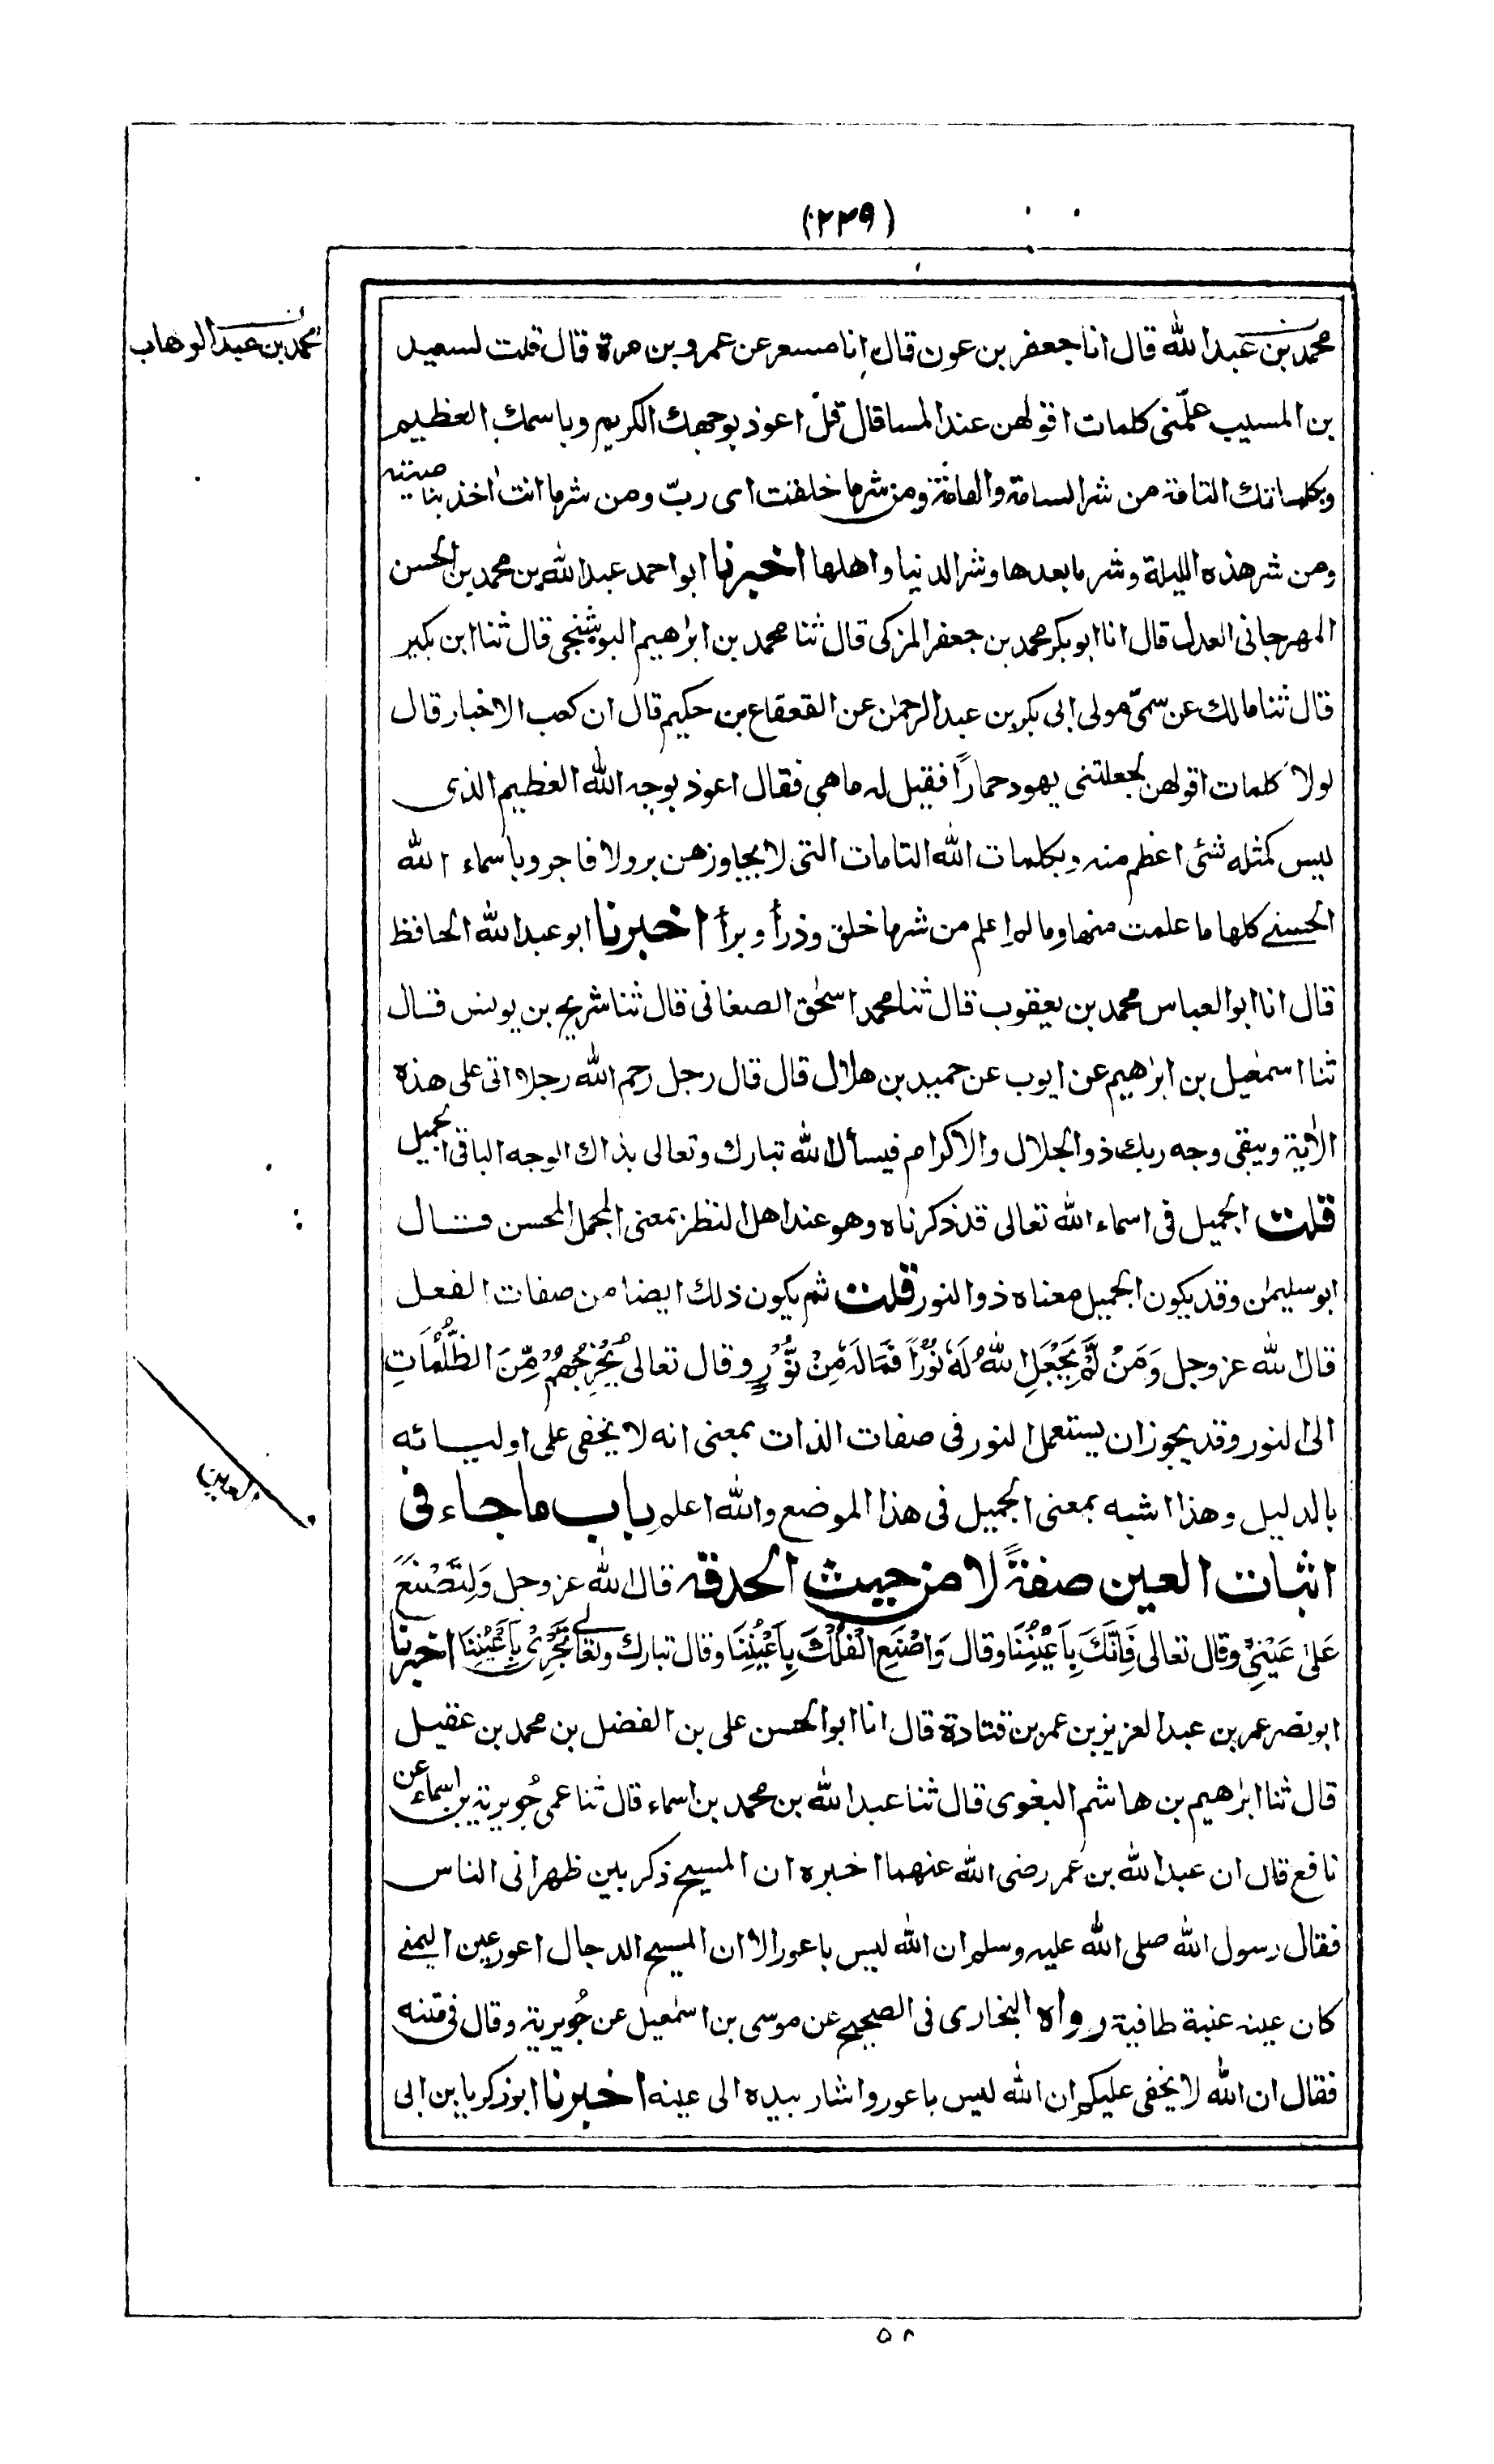 (٢٣٩)
محمد بن عبد الله قال انا جعفر بن عون قال انا مسعر عن عمرو بن مرة قال قلت لسعيد
محمد بن عبد الوهاب
بن المسيب علّمنى كلمات اقولهن عند المسا قال قل اعوذ بوجهك الكريم وباسمك العظيم
وبكلماتك التامة من شر السامة والعامة ومن شر ما خلقت اى ربّ ومن شر ما انت اٰخذ بناصيته
ومن شر هذه الليلة وشر ما بعدها وشر الدنيا واهلها اخبرنا ابو احمد عبد الله بن محمد بن الحسن
المهرجانى العدل قال انا ابو بكر محمد بن جعفر المزكى قال ثنا محمد بن ابرٰهيم البوشنجى قال ثنا ابن بكير
قال ثنا مالك عن سمىّ مولى ابى بكر بن عبد الرحمٰن عن القعقاع بن حكيم قال ان كعب الاخبار قال
لولا كلمات اقولهن لجعلتنى يهود حمارًا فقيل له ما هي فقال اعوذ بوجه الله العظيم الذى
ليس كمثله شئ اعظم منه وبكلمات الله التامات التى لا يجاوزهن بر ولا فاجر وباسماء الله
الحسنے كلها ما علمت منها وما لم اعلم من شر ما خلق وذرأ وبرأ اخبرنا ابو عبد الله الحافظ
قال انا ابو العباس محمد بن يعقوب قال ثنا محمد اسحٰق الصغانى قال ثنا شريح بن يونس قال
ثنا اسمٰعيل بن ابرٰهيم عن ايوب عن حميد بن هلال قال قال رجل رحم الله رجلا اتى على هذه
الاٰية ويبقى وجه ربك ذو الجلال والاكرام فيسأل الله تبارك وتعالى بذاك الوجه الباقى الجميل
قلت الجميل فى اسماء الله تعالى قد ذكرناه وهو عند اهل النظر بمعنى المجمل المحسن قال
ابو سليمٰن وقد يكون الجميل معناه ذو النور قلت ثم يكون ذلك ايضا من صفات الفعل
قال الله عز وجل وَمَنْ لَّمْ يَجْعَلِ اللّٰهُ لَهٗ نُوْرًا فَمَا لَهٗ مِنْ نُّوْرٍ وقال تعالى يُخْرِجُهُمْ مِّنَ الظُّلُمَاتِ
الى النور وقد يجوز ان يستعمل النور فى صفات الذات بمعنى انه لا يخفى على اوليائه
بالدليل وهذا اشبه بمعنى الجميل فى هذا الموضع والله اعلم باب ما جاء فى
اثبات العين صفةً لا من حيث الحدقه قال الله عز وجل وَلِتُصْنَعَ
عَلىٰ عَيْنِىْ وقال تعالى فَاِنَّكَ بِاَعْيُنِنَا وقال وَاصْنَعِ الْفُلْكَ بِاَعْيُنِنَا وقال تبارك وتعالے تَجْرِىْ بِاَعْيُنِنَا اخبرنا
ابو نصر عمر بن عبد العزيز بن عمر بن قتادة قال انا ابو الحسن على بن الفضل بن محمد بن عقيل
قال ثنا ابرٰهيم بن هاشم البغوى قال ثنا عبد الله بن محمد بن اسماء قال ثنا عمى جُويرية بن اسماء عن
نافع قال ان عبد الله بن عمر رضى الله عنهما اخبره ان المسيح ذكر بين ظهرانى الناس
فقال رسول الله صلى الله عليه وسلم ان الله ليس باعور الا ان المسيح الدجال اعور عين اليمنے
كان عينه عنبة طافية رواه البخارى فى الصحيح عن موسى بن اسمٰعيل عن جُويرية وقال فى متنه
فقال ان الله لا يخفى عليكم ان الله ليس باعور واشار بيده الى عينه اخبرنا ابو زكريا بن ابى